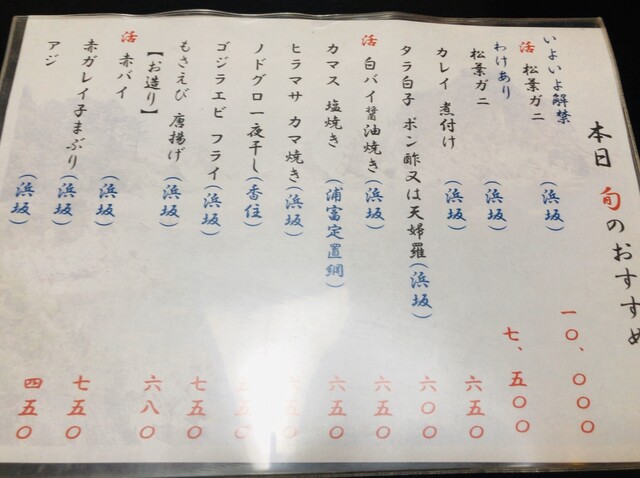 本日 旬のおすすめ
いよいよ解禁
活 松葉ガニ (浜坂) 一〇、〇〇〇
わけあり
松葉ガニ (浜坂) 七、五〇〇
カレイ 煮付け (浜坂) 六五〇
タラ白子 ポン酢又は天婦羅(浜坂) 六〇〇
活 白バイ醤油焼き(浜坂) 六五〇
カマス 塩焼き (浦富定置網) 六五〇
ヒラマサ カマ焼き(浜坂) 五〇
ノドグロ一夜干し(香住) 五〇
ゴジラエビ フライ(浜坂) 七五〇
もさえび 唐揚げ (浜坂) 六八〇
【お造り】
活 赤バイ (浜坂)
赤ガレイ子まぶり(浜坂) 七五〇
アジ (浜坂) 四五〇